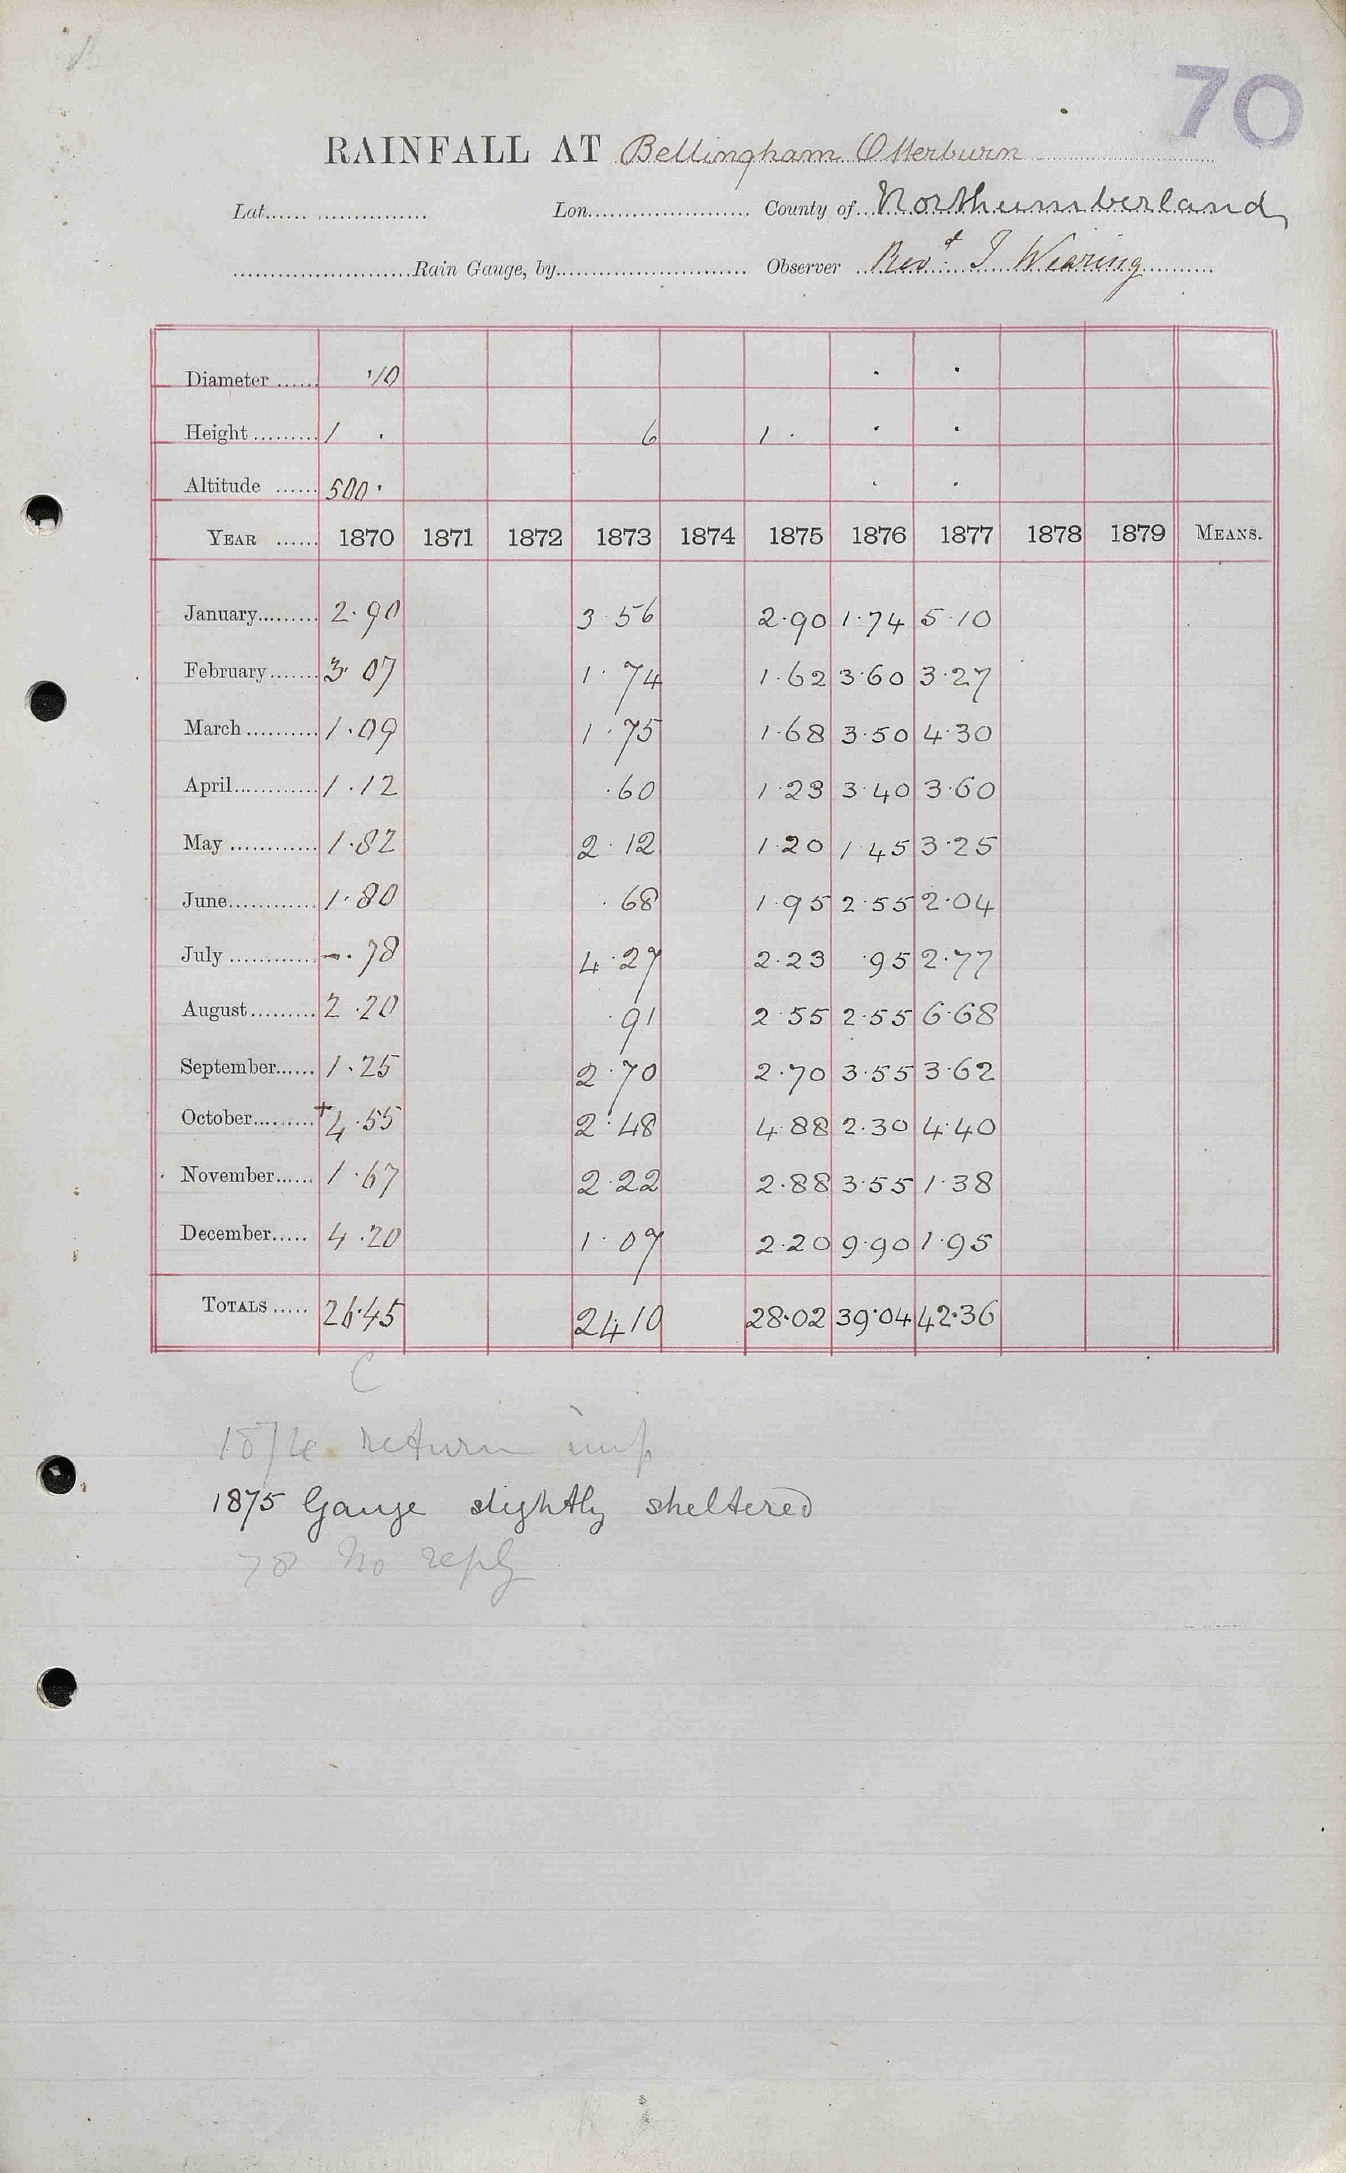 70
RAINFALL AT Bellingham Otterburn
Lat. Lon. County of Northumberland
Rain Gauge, by Observer Revd. J Wearing
Diameter 10 . .
Height 1 . 6 1 . . .
Altitude 500 . . .
YEAR 1870 1871 1872 1873 1874 1875 1876 1877 1878 1879 MEANS.
January 2.90 3.56 2.90 1.74 5.10
February 3.07 1.74 1.62 3.60 3.27
March 1.09 1.75 1.68 3.50 4.30
April 1.12 .60 1.23 3.40 3.60
May 1.82 2.12 1.20 1.45 3.25
June 1.80 .68 1.95 2.55 2.04
July -.78 4.27 2.23 .95 2.77
August 2.20 .91 2.55 2.55 6.68
September 1.25 2.70 2.70 3.55 3.62
October +4.55 2.48 4.88 2.30 4.40
November 1.67 2.22 2.88 3.55 1.38
December 4.20 1.07 2.20 9.90 1.95
TOTALS 26.45 24.10 28.02 39.04 42.36
C
1874 return imp
1875 Gauge slightly sheltered
78 No reply